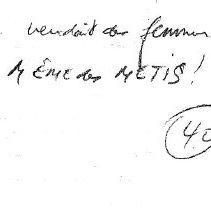 vendait des femmes
MÊME des METIS!
40